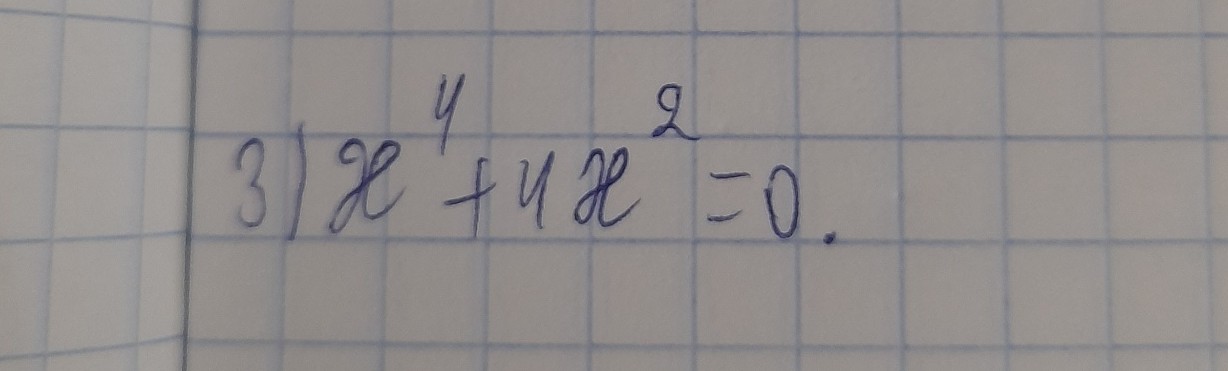 3) x⁴+4x²=0.